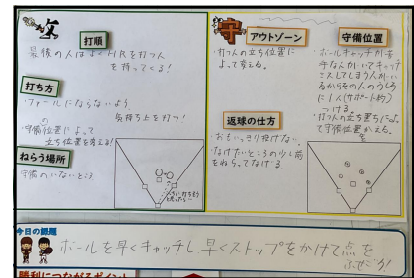 打順
最後の人はよくHRを打つ人
を持ってくる!
打ち方
・ファールにならないよう
気持ち上を打つ!
・守備位置によって
の
立ち位置を考える!
ねらう場所
守備のいないところ
アウトゾーン
・打つ人の立ち位置に
よって考える。
返球の仕方
・おもいっきり投げない。
・なげたいところの少し前
をねらってなげる
守備位置
・ボールキャッチが苦
手な人がいてキャッチ
ミスしてしまう人がい
るからその人のうしろ
に1人(サポート的)
つける。
・打つ人の立ち位置によっ
て守備位置かえる。
今日の課題
ボールを早くキャッチし、早くストップをかけて点を
ふせごう!
勝利につながるポイント